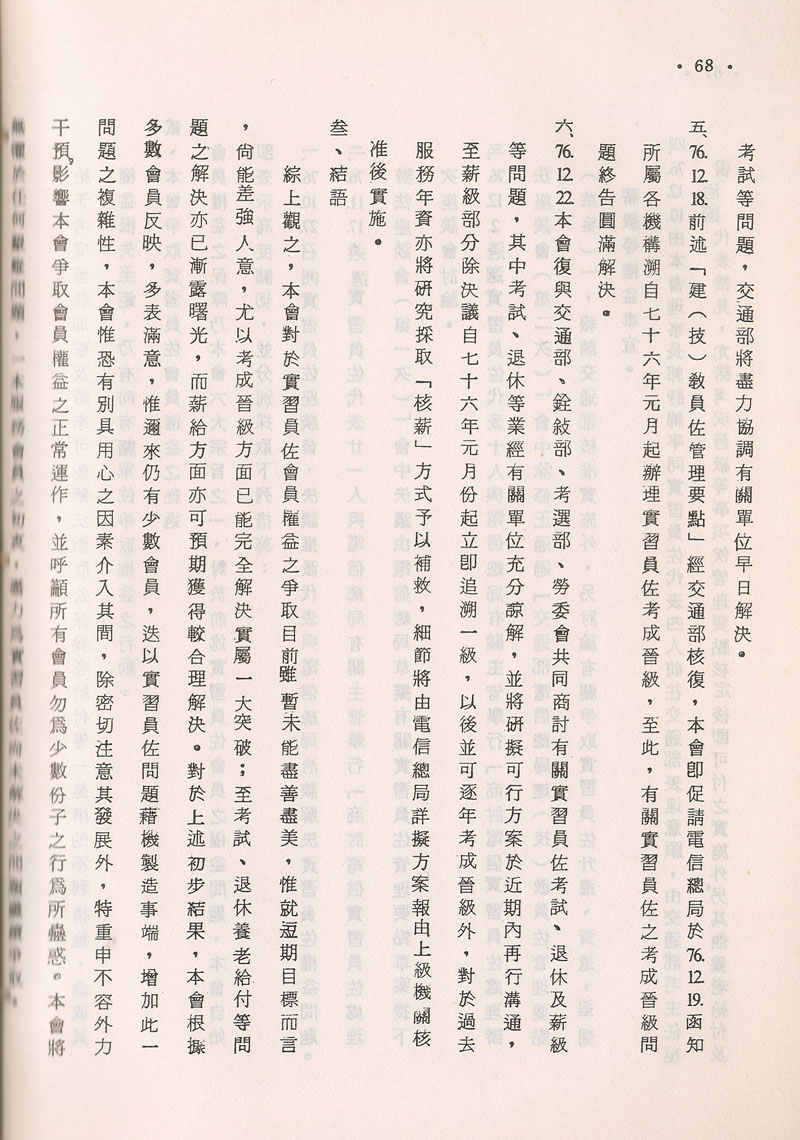 • 68 •
考試等問題，交通部將盡力協調有關單位早日解決。
五、76.12.18.前述「建（技）教員佐管理要點」經交通部核復，本會卽促請電信總局於76.12.19.函知
所屬各機構溯自七十六年元月起辦理實習員佐考成晉級，至此，有關實習員佐之考成晉級問
題終告圓滿解決。
六、76.12.22.本會復與交通部、銓敘部、考選部、勞委會共同商討有關實習員佐考試、退休及薪級
等問題，其中考試、退休等業經有關單位充分諒解，並將研擬可行方案於近期內再行溝通，
至薪級部分除決議自七十六年元月份起立卽追溯一級，以後並可逐年考成晉級外，對於過去
服務年資亦將研究採取「核薪」方式予以補救，細節將由電信總局詳擬方案報由上級機關核
准後實施。
叁、結語
綜上觀之，本會對於實習員佐會員權益之爭取目前雖暫未能盡善盡美，惟就短期目標而言
，尙能差強人意，尤以考成晉級方面已能完全解決實屬一大突破；至考試、退休養老給付等問
題之解決亦已漸露曙光，而薪給方面亦可預期獲得較合理解決。對於上述初步結果，本會根據
多數會員反映，多表滿意，惟邇來仍有少數會員，迭以實習員佐問題藉機製造事端，增加此一
問題之複雜性，本會惟恐有別具用心之因素介入其間，除密切注意其發展外，特重申不容外力
干預，影響本會爭取會員權益之正常運作，並呼籲所有會員勿爲少數份子之行爲所蠱惑。本會將